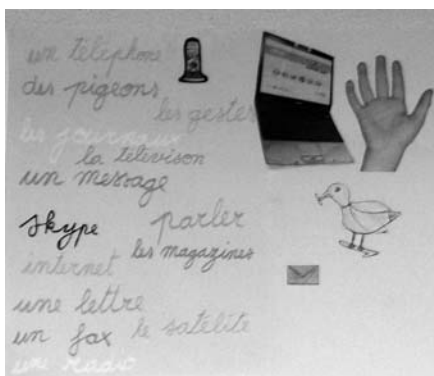 un téléphone
des pigeons
les gestes
les journaux
la télévison
un message
skype
parler
les magazines
internet
une lettre
un fax
le satélite
une radio